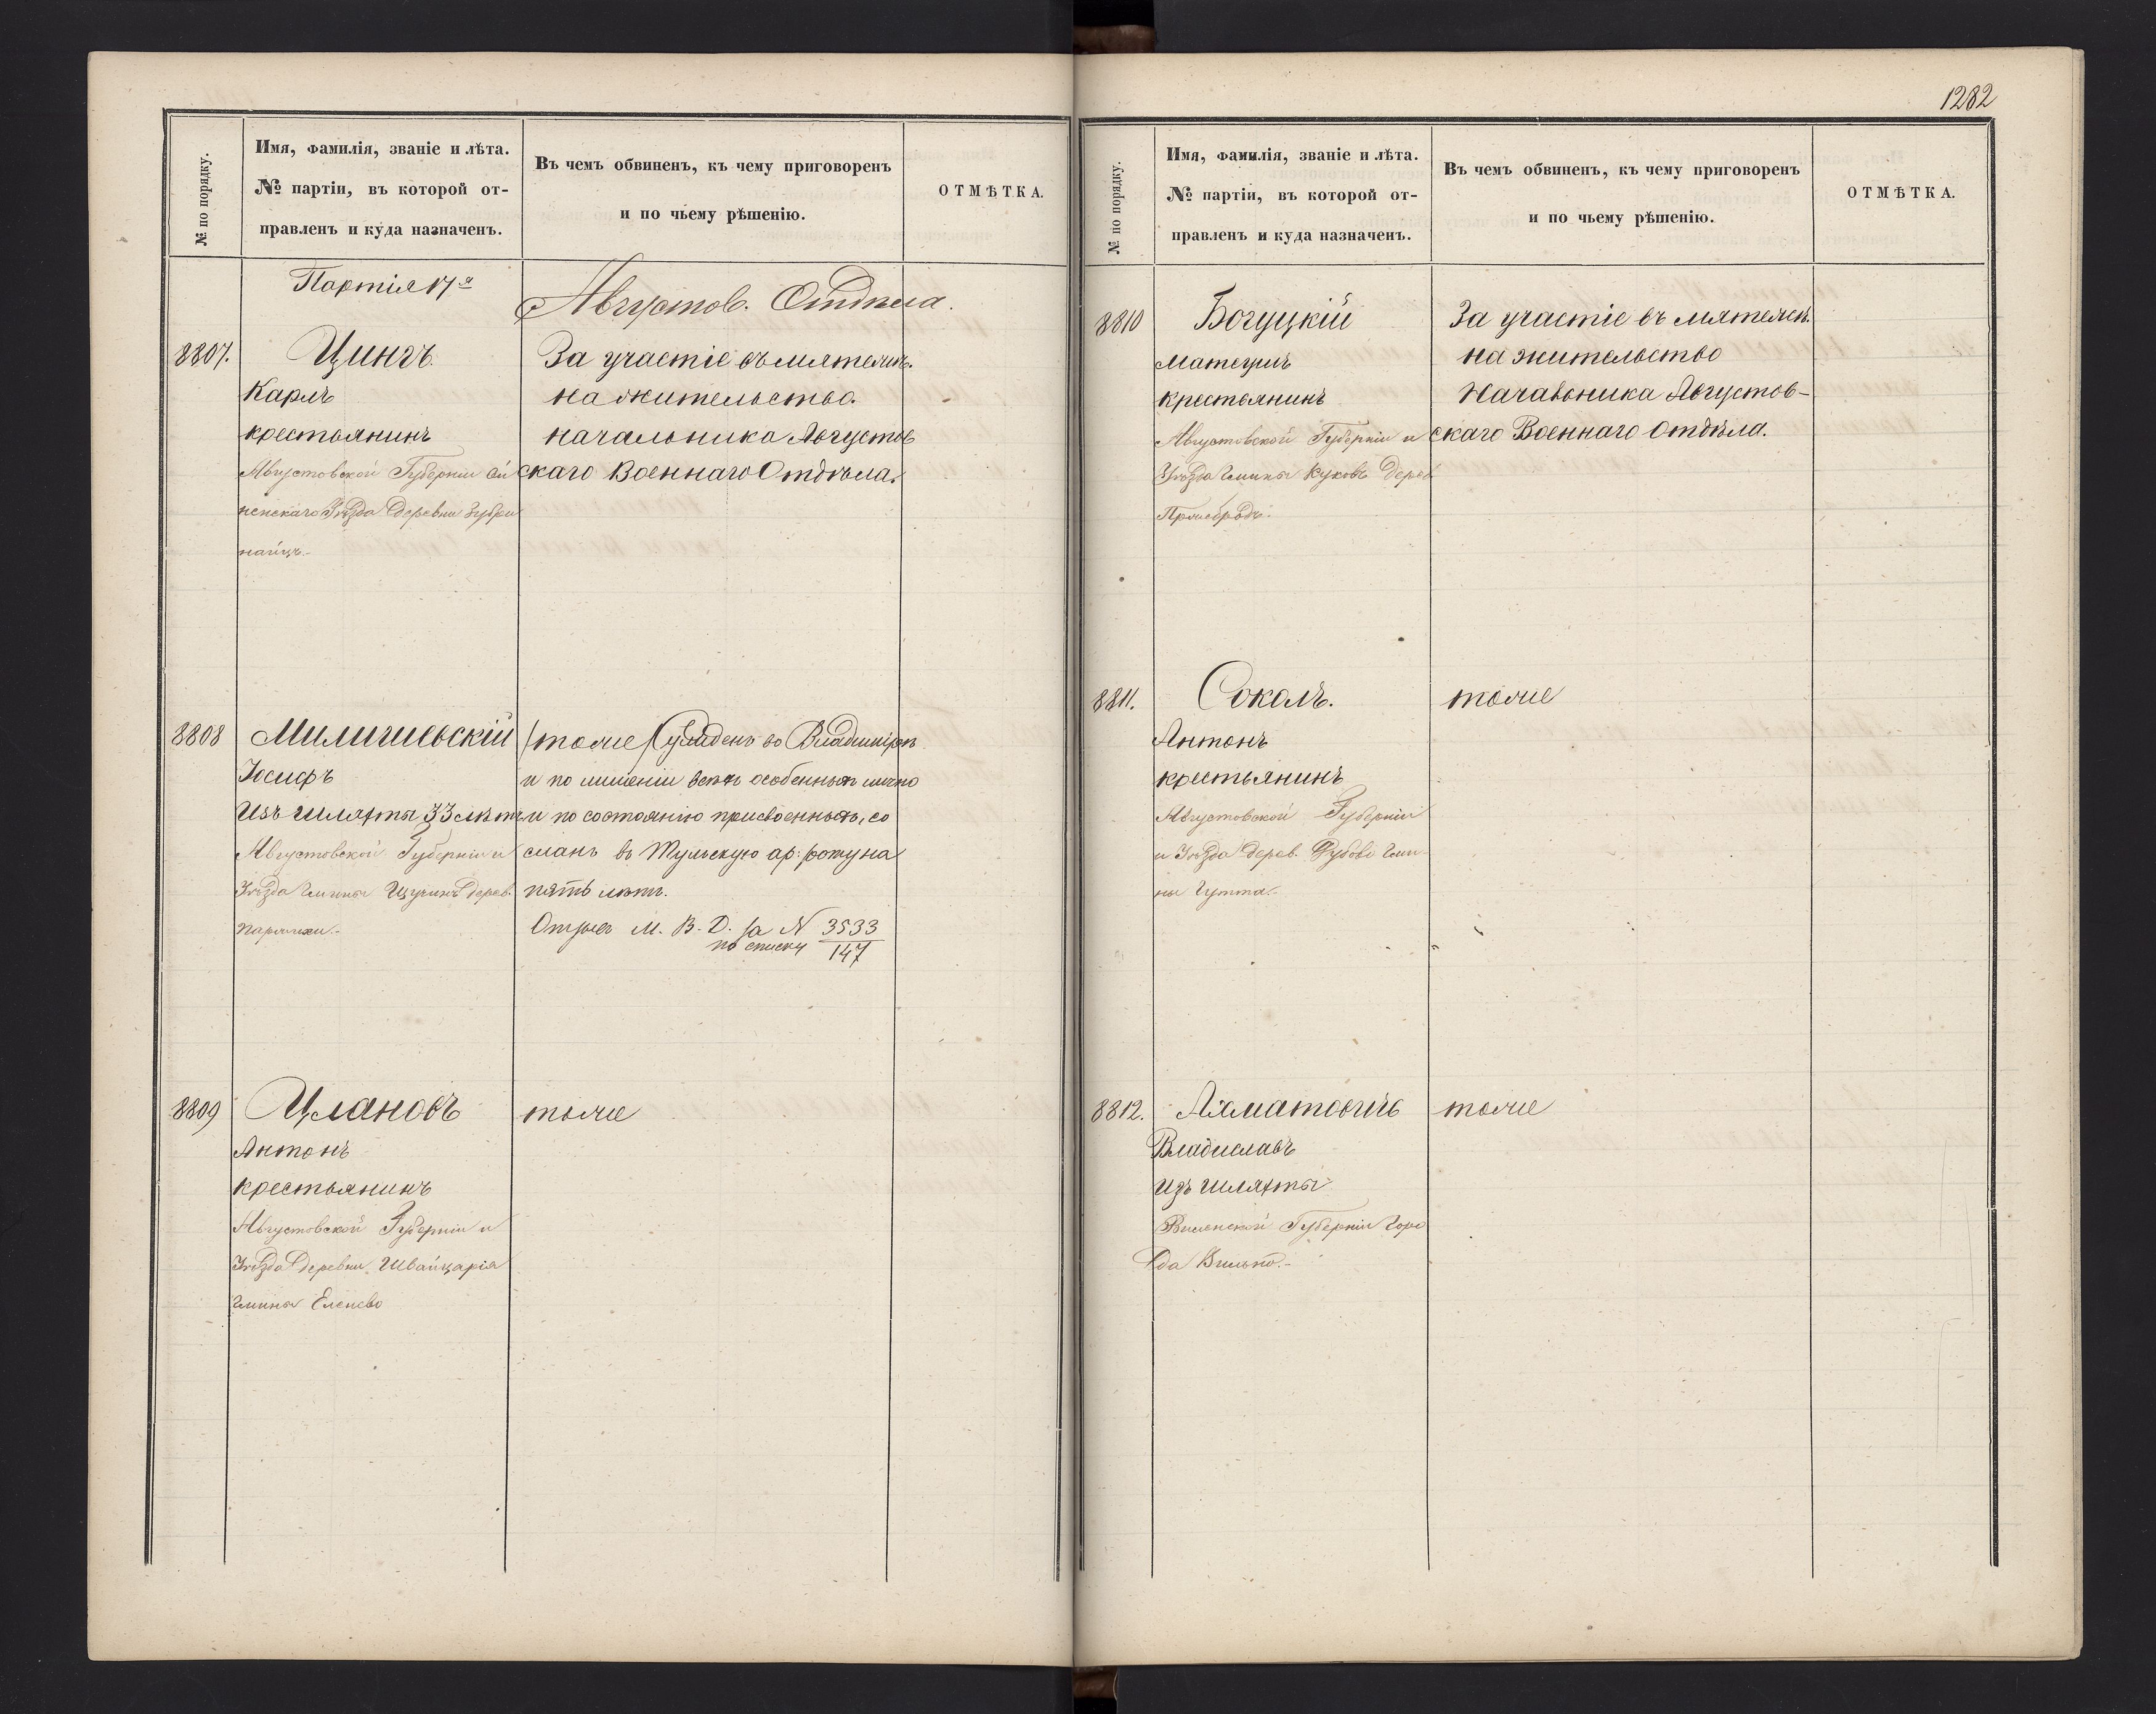 1282
№ по порядку.
Имя, фамилія, званіе и лѣта.
№ партіи, въ которой от-
правленъ и куда назначенъ.
Въ чемъ обвиненъ, къ чему приговоренъ
и по чьему рѣшенію.
ОТМѢТКА.
Партія 17я
Августов. Отдѣла.
8807.
Цингъ.
Карлъ
крестьянинъ
Августовской Губерніи Сей
ненскаго Уѣзда деревни
За участіе въ мятежѣ.
на жительство.
начальника Августов
скаго Военнаго Отдѣла.
8808
Іосифъ
Изъ шляхты 33 лѣтъ
Августовской Губерніи и
Уѣзда Гмины Щучинъ дерев.
тоже во Владимірѣ
и по лишеніи всѣхъ особенныхъ лично
и по состоянію присвоенныхъ, со
сланъ въ Тульскую ар: роту на
пять лѣтъ.
М. В. Д. за N 3533
по списку 147
8809
Улановъ
Антонъ
крестьянинъ
Августовской Губерніи и
Уѣзда деревни Швайцарія
Гмины Еленево
тоже
№ по порядку.
Имя, фамилія, званіе и лѣта.
№ партіи, въ которой от-
правленъ и куда назначенъ.
Въ чемъ обвиненъ, къ чему приговоренъ
и по чьему рѣшенію.
ОТМѢТКА.
8810
Богуцкій
Матеушъ
крестьянинъ
Августовской Губерніи и
Уѣзда Гмины Куковъ Дерев
За участіе въ мятежѣ.
на жительство
Начальника Августов-
скаго Военнаго Отдѣла.
8811.
Соколъ.
Антонъ
крестьянинъ
Августовской Губерніи
и Уѣзда дерев. Гми-
ны Гутта.
тоже
8812.
Ахматовичъ
Владиславъ
Изъ шляхты
Виленской Губерніи Горо
да Вильно.
тоже